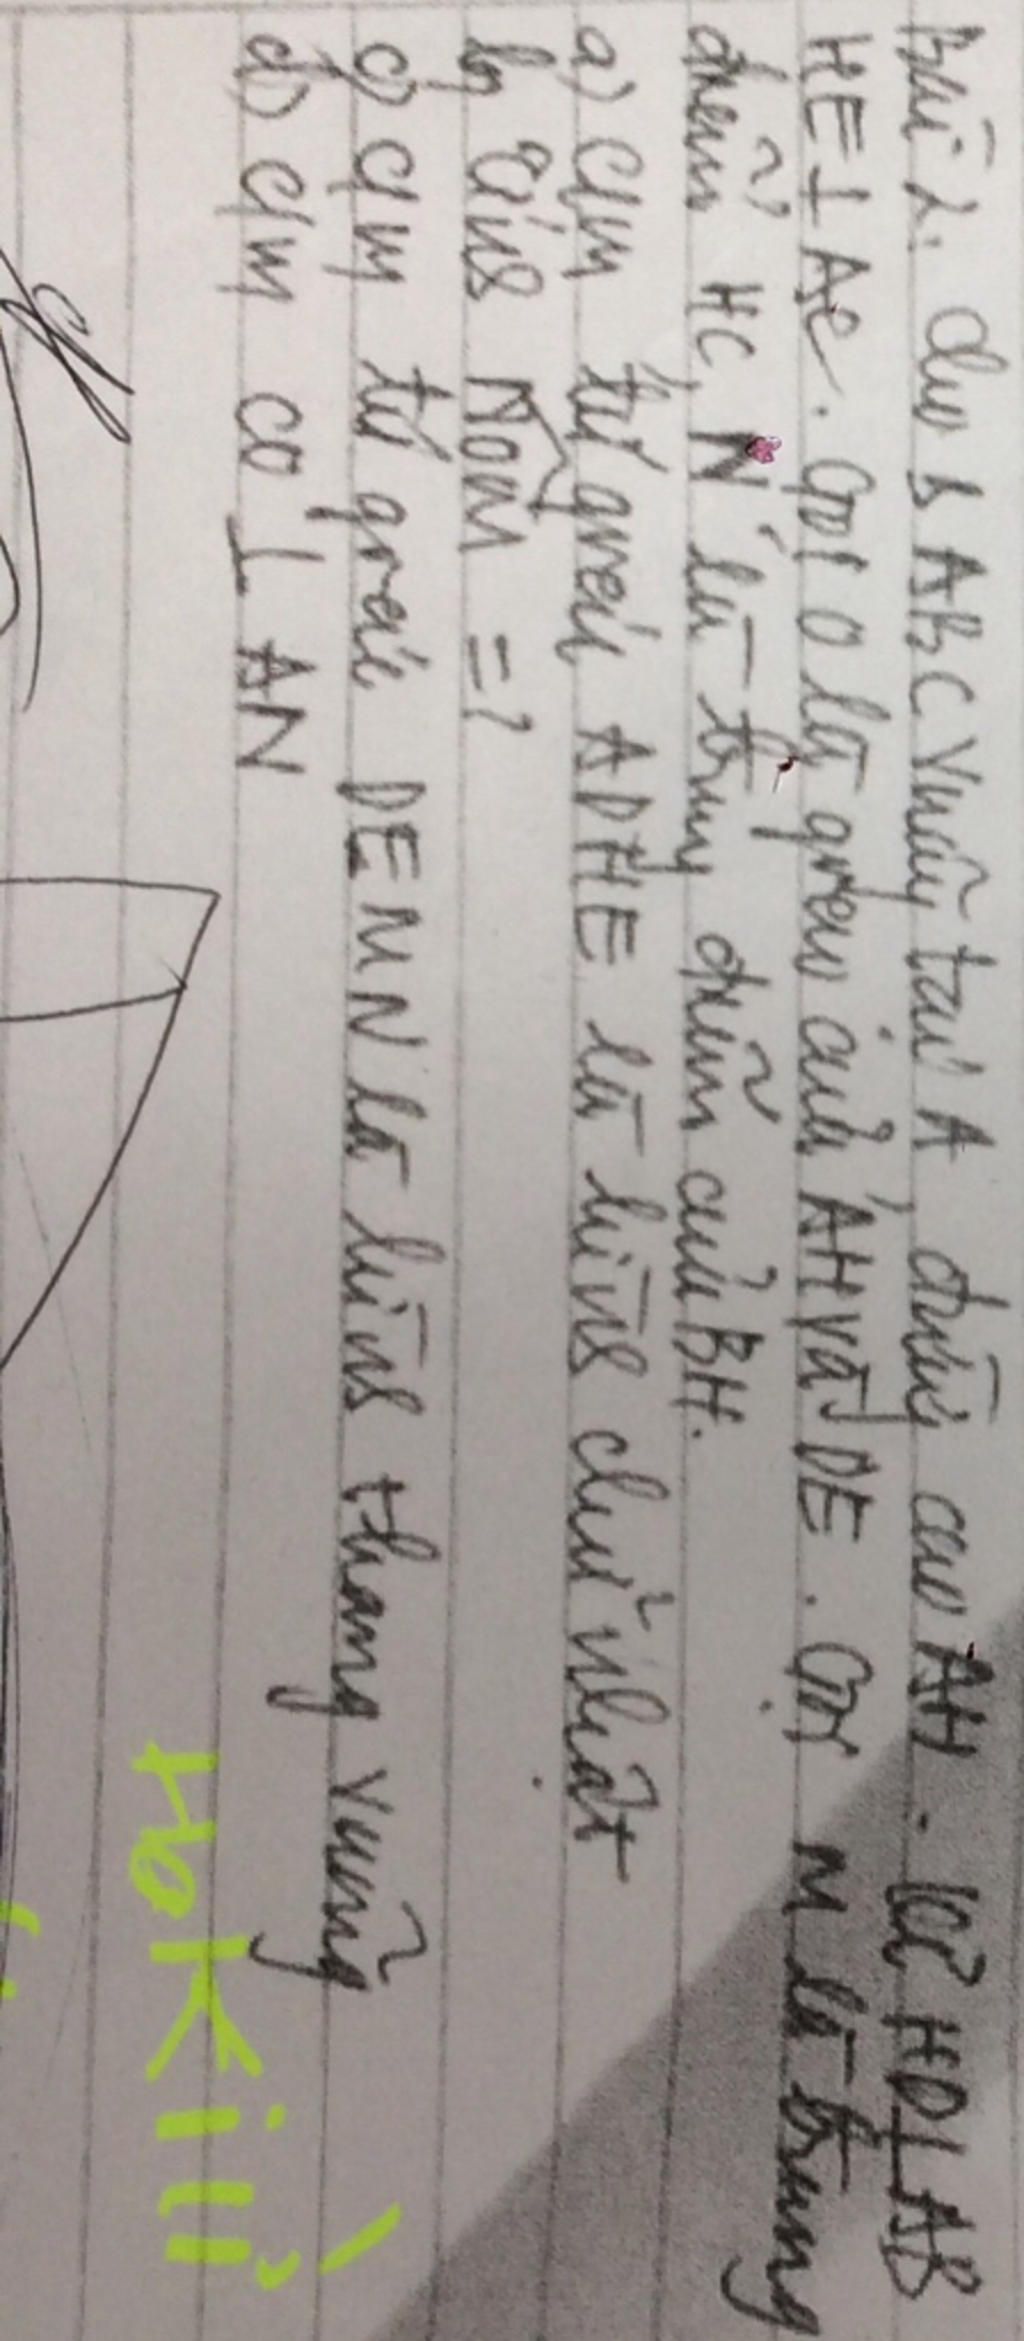 Bài 2: cho Δ ABC vuông tại A, đường cao AH. Kẻ HD⊥AB
HE⊥AC. Gọi O là giao của AH và DE. Gọi M là trung
điểm HC, N là trung điểm của BH.
a) C/m tứ giác ADHE là hình chữ nhật
b) Tính NOM = ?
c) C/m tứ giác DEMN là hình thang vuông
d) C/m CO ⊥ AN